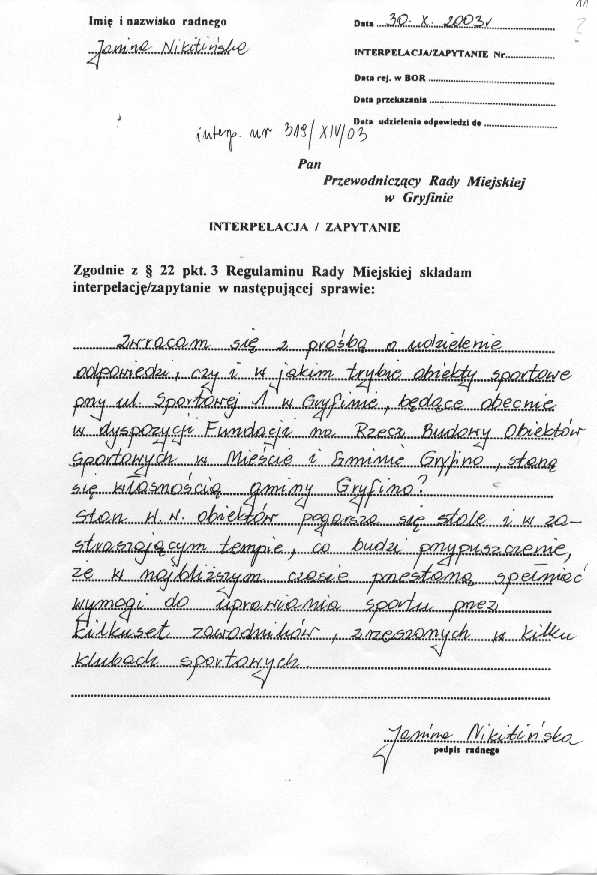 Imię i nazwisko radnego
Janina Nikitińska
Data 30. X. 2003r
INTERPELACJA/ZAPYTANIE Nr
Data rej. w BOR
Data przekazania
Data udzielenia odpowiedzi do
interp. nr 319/XIV/03
Pan
Przewodniczący Rady Miejskiej
w Gryfinie
INTERPELACJA / ZAPYTANIE
Zgodnie z § 22 pkt. 3 Regulaminu Rady Miejskiej składam
interpelację/zapytanie w następującej sprawie:
Zwracam się z prośbą o udzielenie
odpowiedzi, czy i w jakim trybie obiekty sportowe
przy ul. Sportowej 1 w Gryfinie, będące obecnie
w dyspozycji Fundacji na Rzecz Budowy Obiektów
Sportowych w Mieście i Gminie Gryfino, staną
się własnością gminy Gryfino?
Stan w.w. obiektów pogarsza się stale i w za-
straszającym tempie, co budzi przypuszczenie,
że w najbliższym czasie przestaną spełniać
wymogi do uprawiania sportu przez
kilkuset zawodników, zrzeszonych w kilku
klubach sportowych
Janina Nikitińska
podpis radnego